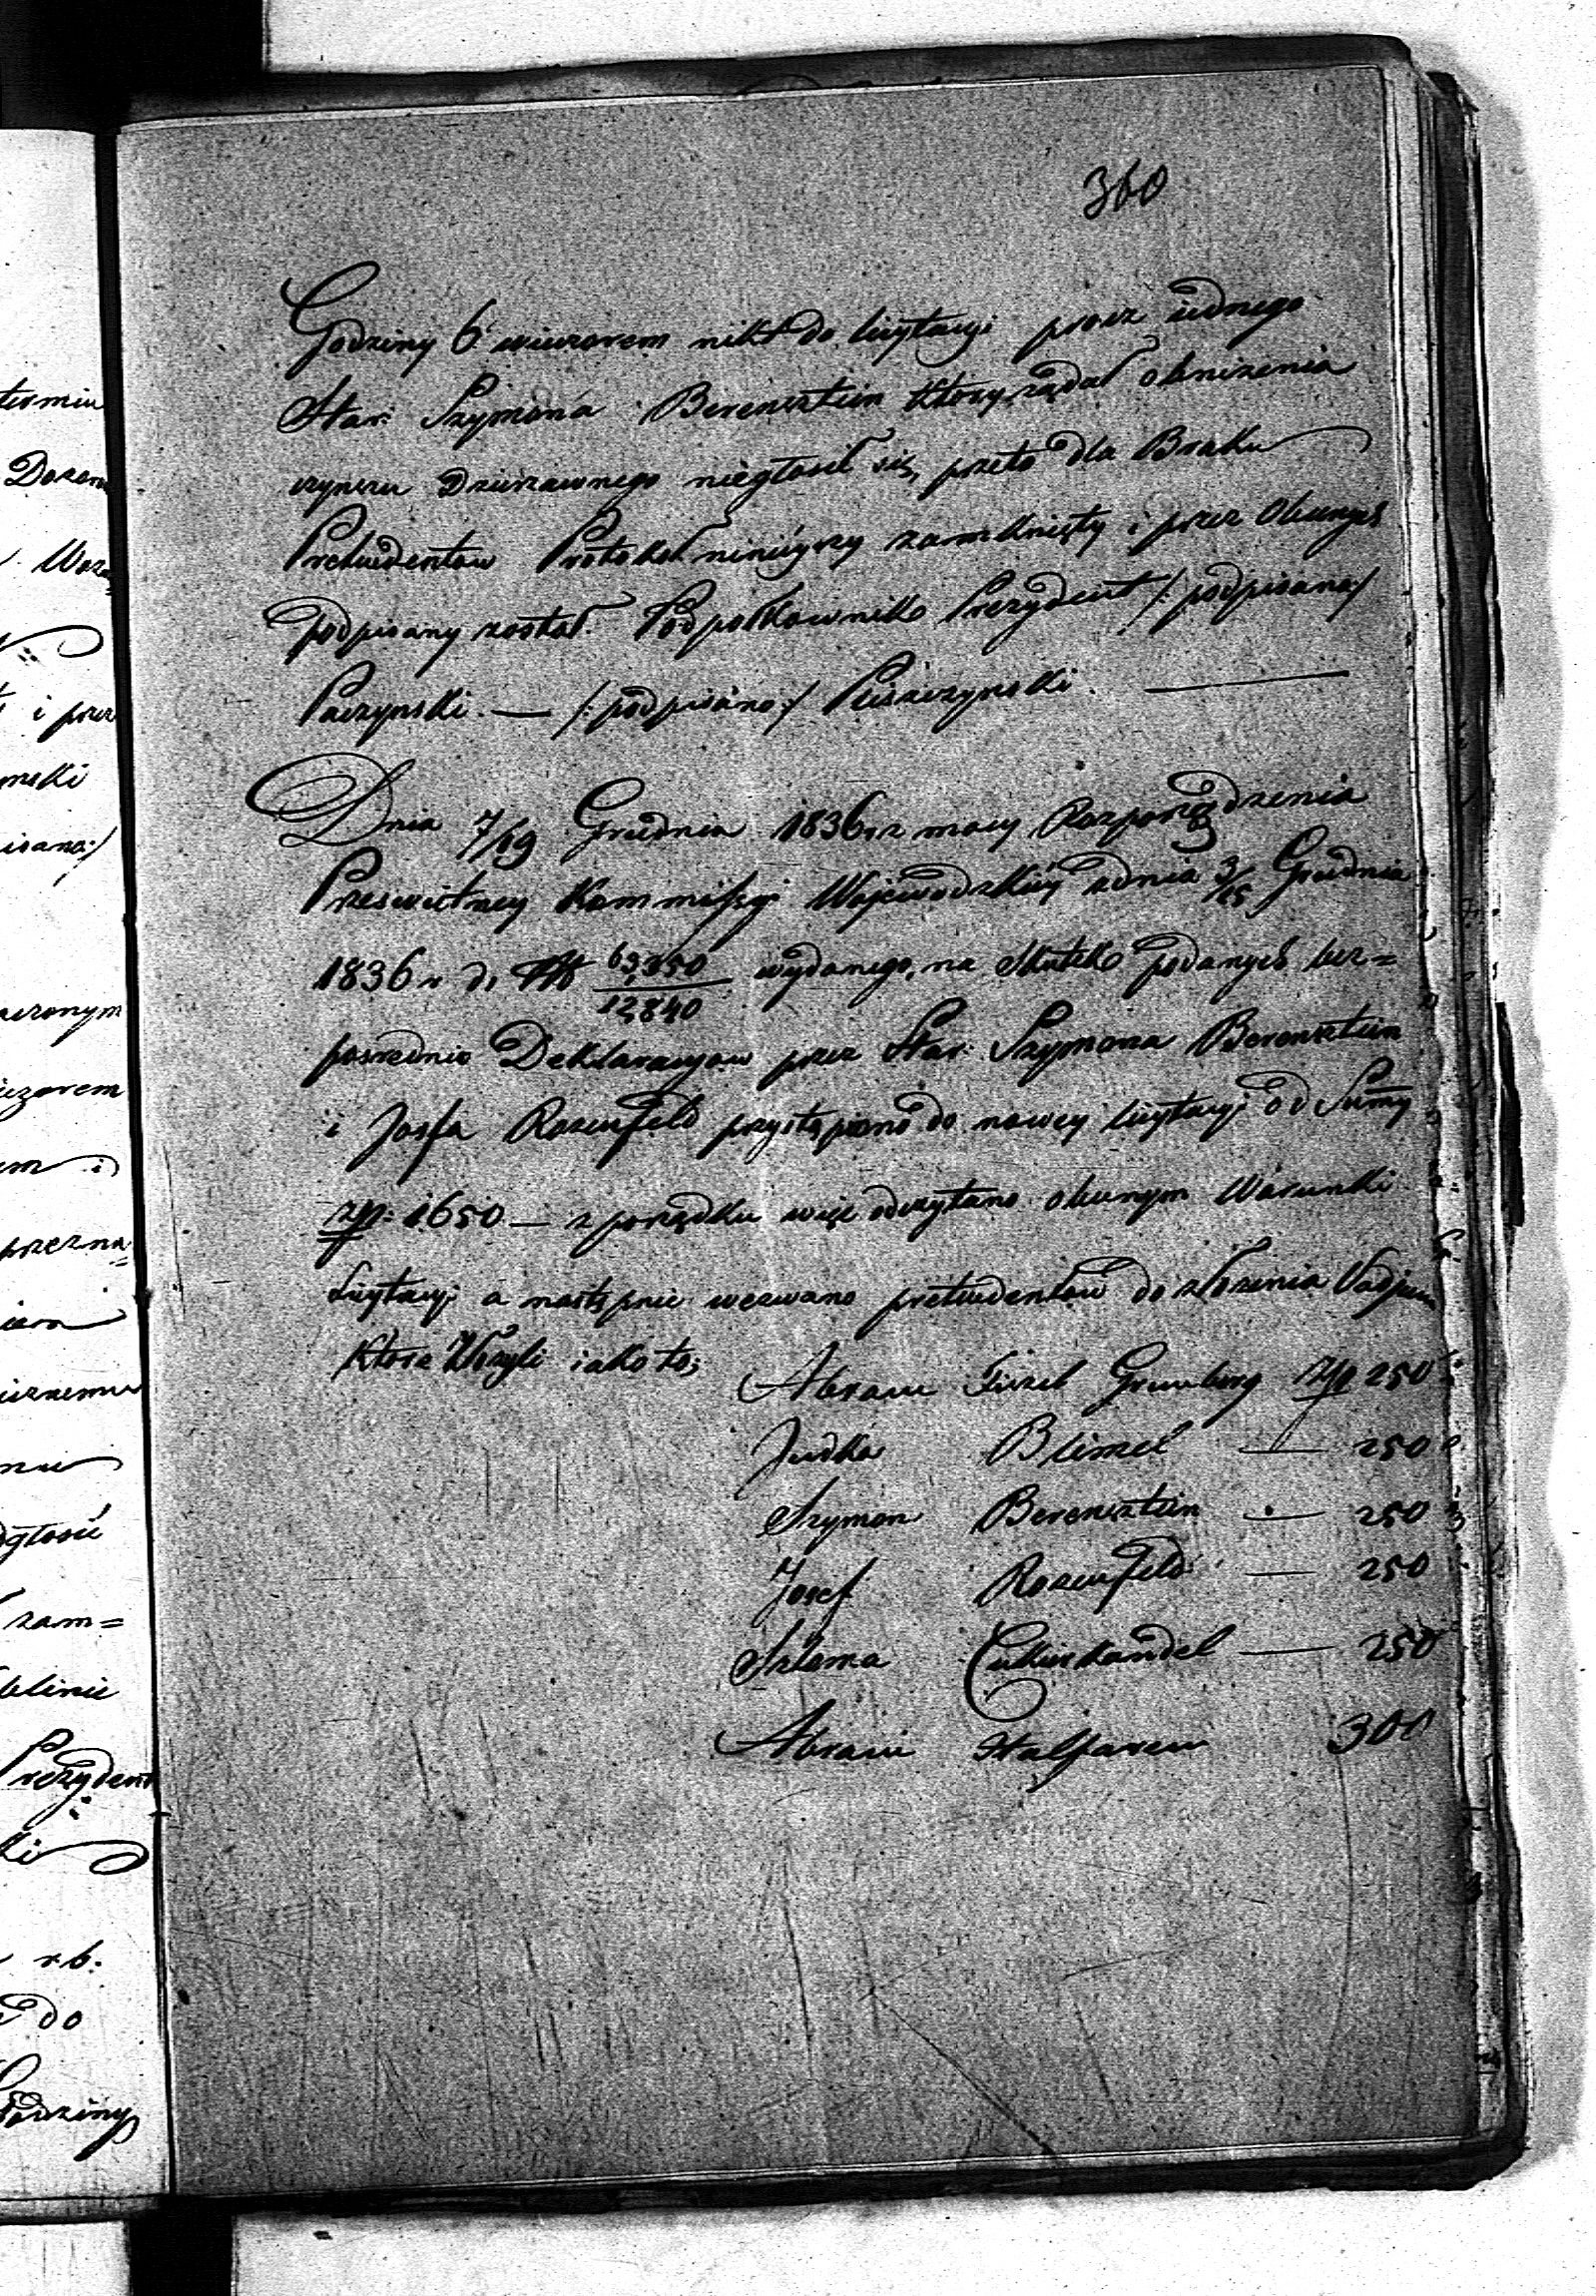 360
Godziny 6 wieczorem nikt do licytacyi procz iednego
Star: Szymona Berensztein ktory żądał obniżenia
czynszu Dzierzawnego niegłosił się, przeto dla Braku
Pretendentow Protokoł ninieyszy zamknięty i przez Obecnych
podpisany został. Podpołkownik Prezydent /: podpisano:/
Paczynski. — /: podpisano:/ Pliszczynski. —
Dnia 7/19 Grudnia 1836 r z mocy Rozporządzenia
Prześwietney Kommissyi Wojewodzkiey z dnia 3/15 Grudnia
1836 r do № 63350/12840 wydanego, na skutek podanych bez=
posrednio Deklaracyow przez Star: Szymona Berensztein
i Josfa Rozenfeld przystąpiono do nowey licytacyi od Summy
złp: 1650 — z porządku więc odczytano obecnym Warunki
Licytacyi a następnie wezwano pretendentow do złożenia Vadium
które złożyli iako to;
Abram Fiszel Grunberg złp 250
Judka Blimel — 250
Szymon Berensztein — 250
Josef Rozenfeld — 250
Szloma Cukierkandel — 250
Abram Halparen 300
termin
i przez
nski
wieczorem
i
przezna
zam=
Prezydent
r b.
do
Godziny